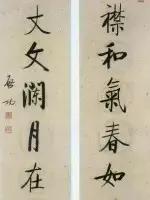 襟和氣春如
丈文瀾月在
启功